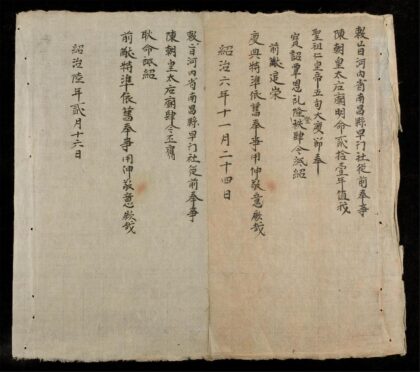 敕旨河内省南昌縣早行社從前奉事
陳朝皇太后廟明命貳拾壹年值我
聖祖仁皇帝五旬大慶節奉
詔覃恩礼隆登秩肆今祗紹
前猷建崇
慶典特準依舊奉事用伸敬意厥哉
紹治六年十一月二十四日
敕旨河内省南昌縣早行社從前奉事
陳朝皇太后廟肆今丕膺
耿命祗紹
前猷特準依舊奉事用伸敬意厥哉
紹治陸年貳月十六日